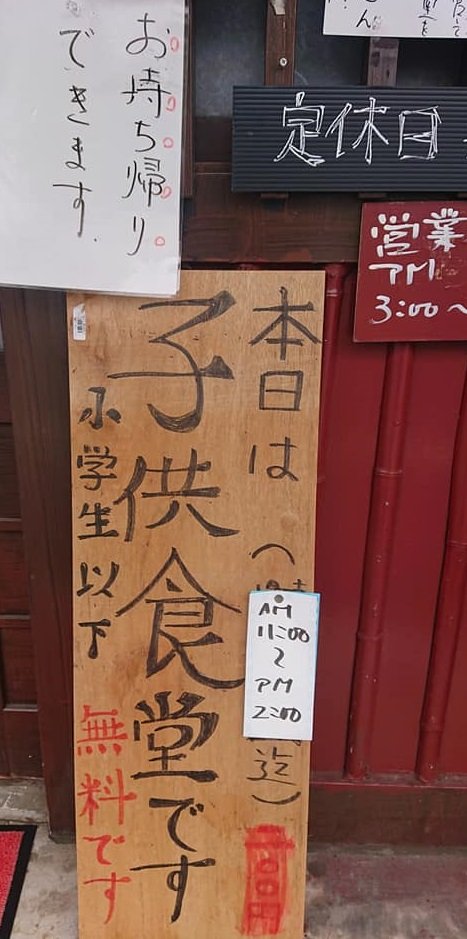 お持ち帰り
できます.
定休日
営業
PM
3:00〜
本日は
(
AM
11:00
〜
PM
2:00
迄)
子供食堂です
小学生以下
無料です